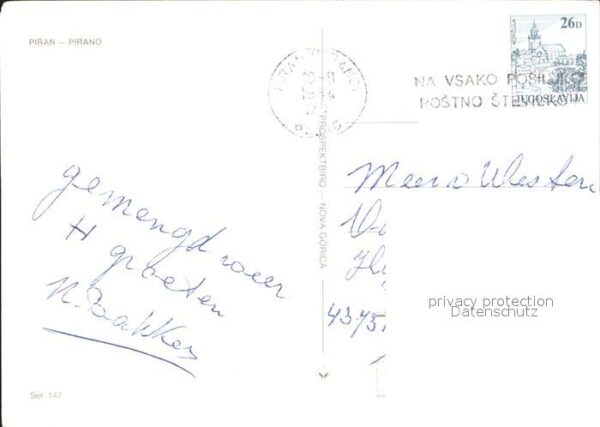 PIRAN — PIRANO
26D
JUGOSLAVIJA
NA VSAKO POŠILJKO
POŠTNO ŠTEVILKO
PROSPEKTBIRO NOVA GORICA
gemengd weer
H groeten
N. Bakker
privacy protection
Datenschutz
Ser. 147